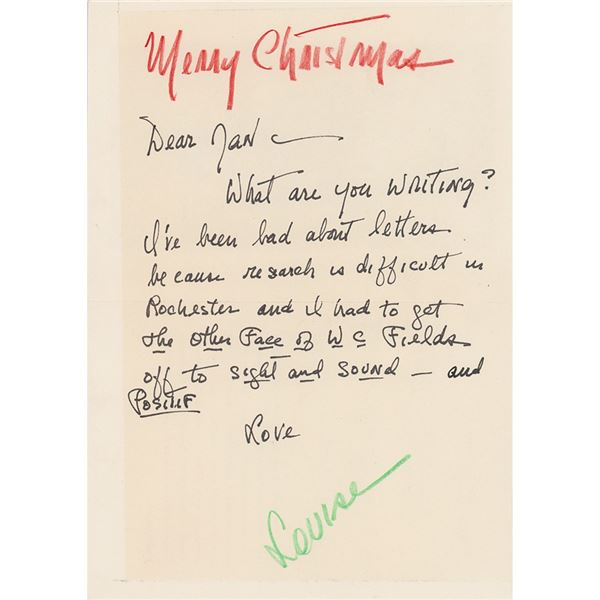 Merry Christmas
Dear Jan —
What are you writing?
I've been bad about letters
because research is difficult in
Rochester and I had to get
the other Face of W C Fields
off to sight and sound — and
Positif
Love
Louise